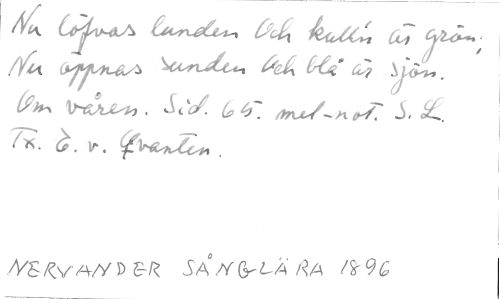 Nu löfvas lunden Och kull'n är grön;
Nu öppnas sunden Och blå är sjön.
Om våren. Sid. 65. mel-not. S. L.
Tx. E. v. Qvanten.
NERVANDER SÅNGLÄRA 1896